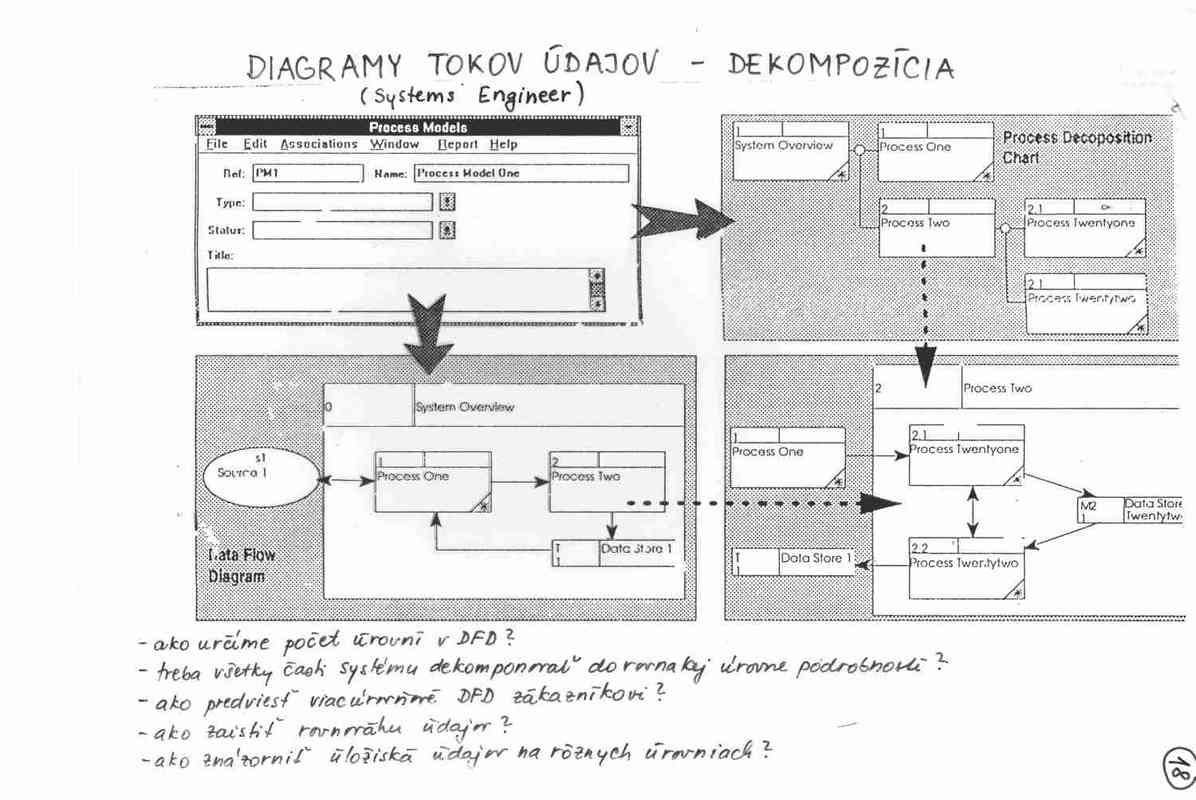 DIAGRAMY TOKOV ÚDAJOV - DEKOMPOZÍCIA
(Systems Engineer)
Process Models
File Edit Associations Window Report Help
Ref: PM1 Name: Process Model One
Type:
Status:
Title:
Process Decoposition
Chart
1
System Overview
1
Process One
2
Process Two
2.1
Process Twentyone
2.1
Process Twentytwo
0
System Overview
s1
Source 1
1
Process One
2
Process Two
T
1
Data Store 1
Data Flow
Diagram
2
Process Two
1
Process One
2.1
Process Twentyone
M2
1
Data Store
Twentytw
2.2
Process Twentytwo
T
1
Data Store 1
- ako určíme počet úrovní v DFD?
- treba všetky časti systému dekomponovať do rovnakej úrovne podrobností?
- ako predviesť viacúrovňové DFD zákazníkovi?
- ako zaistiť rovnováhu údajov?
- ako znázorniť úložiská údajov na rôznych úrovniach?
18